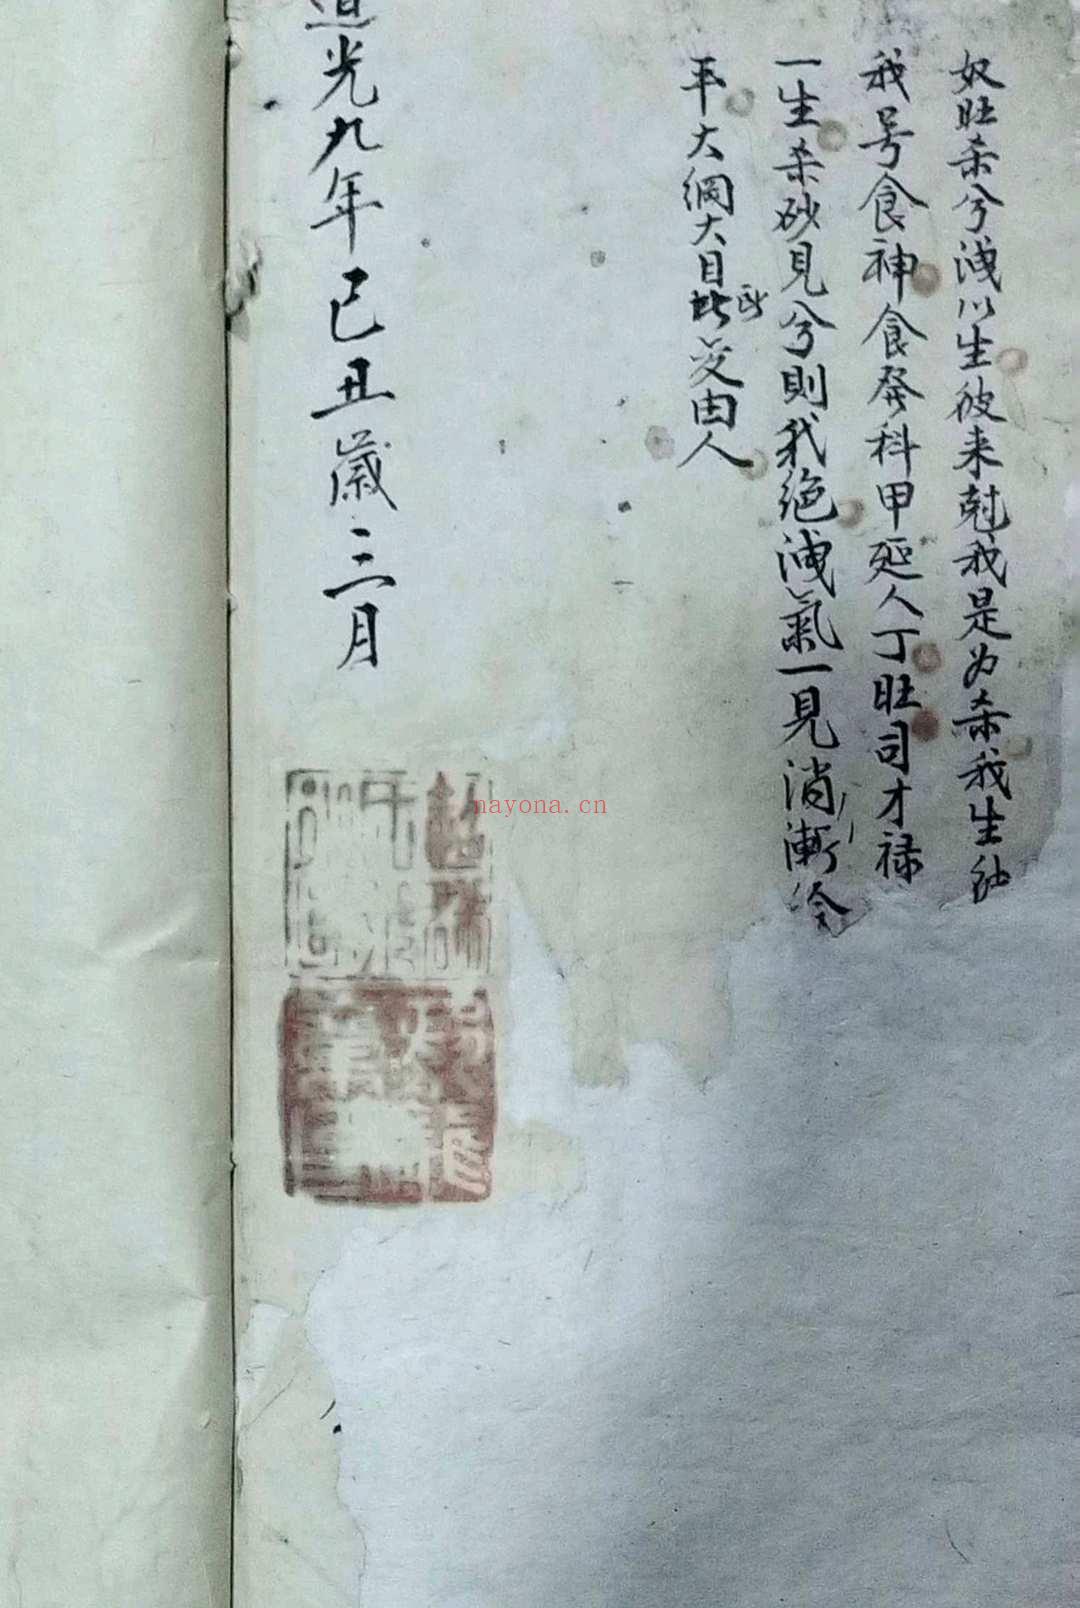 奴旺杀兮洩以生彼来尅我是为杀我生彼
我号食神食癸科甲延人丁旺司才禄
一生杀砂見兮則我绝洩氣一見消漸
平大綱大目此受由人
道光九年己丑歲三月
nayona.cn